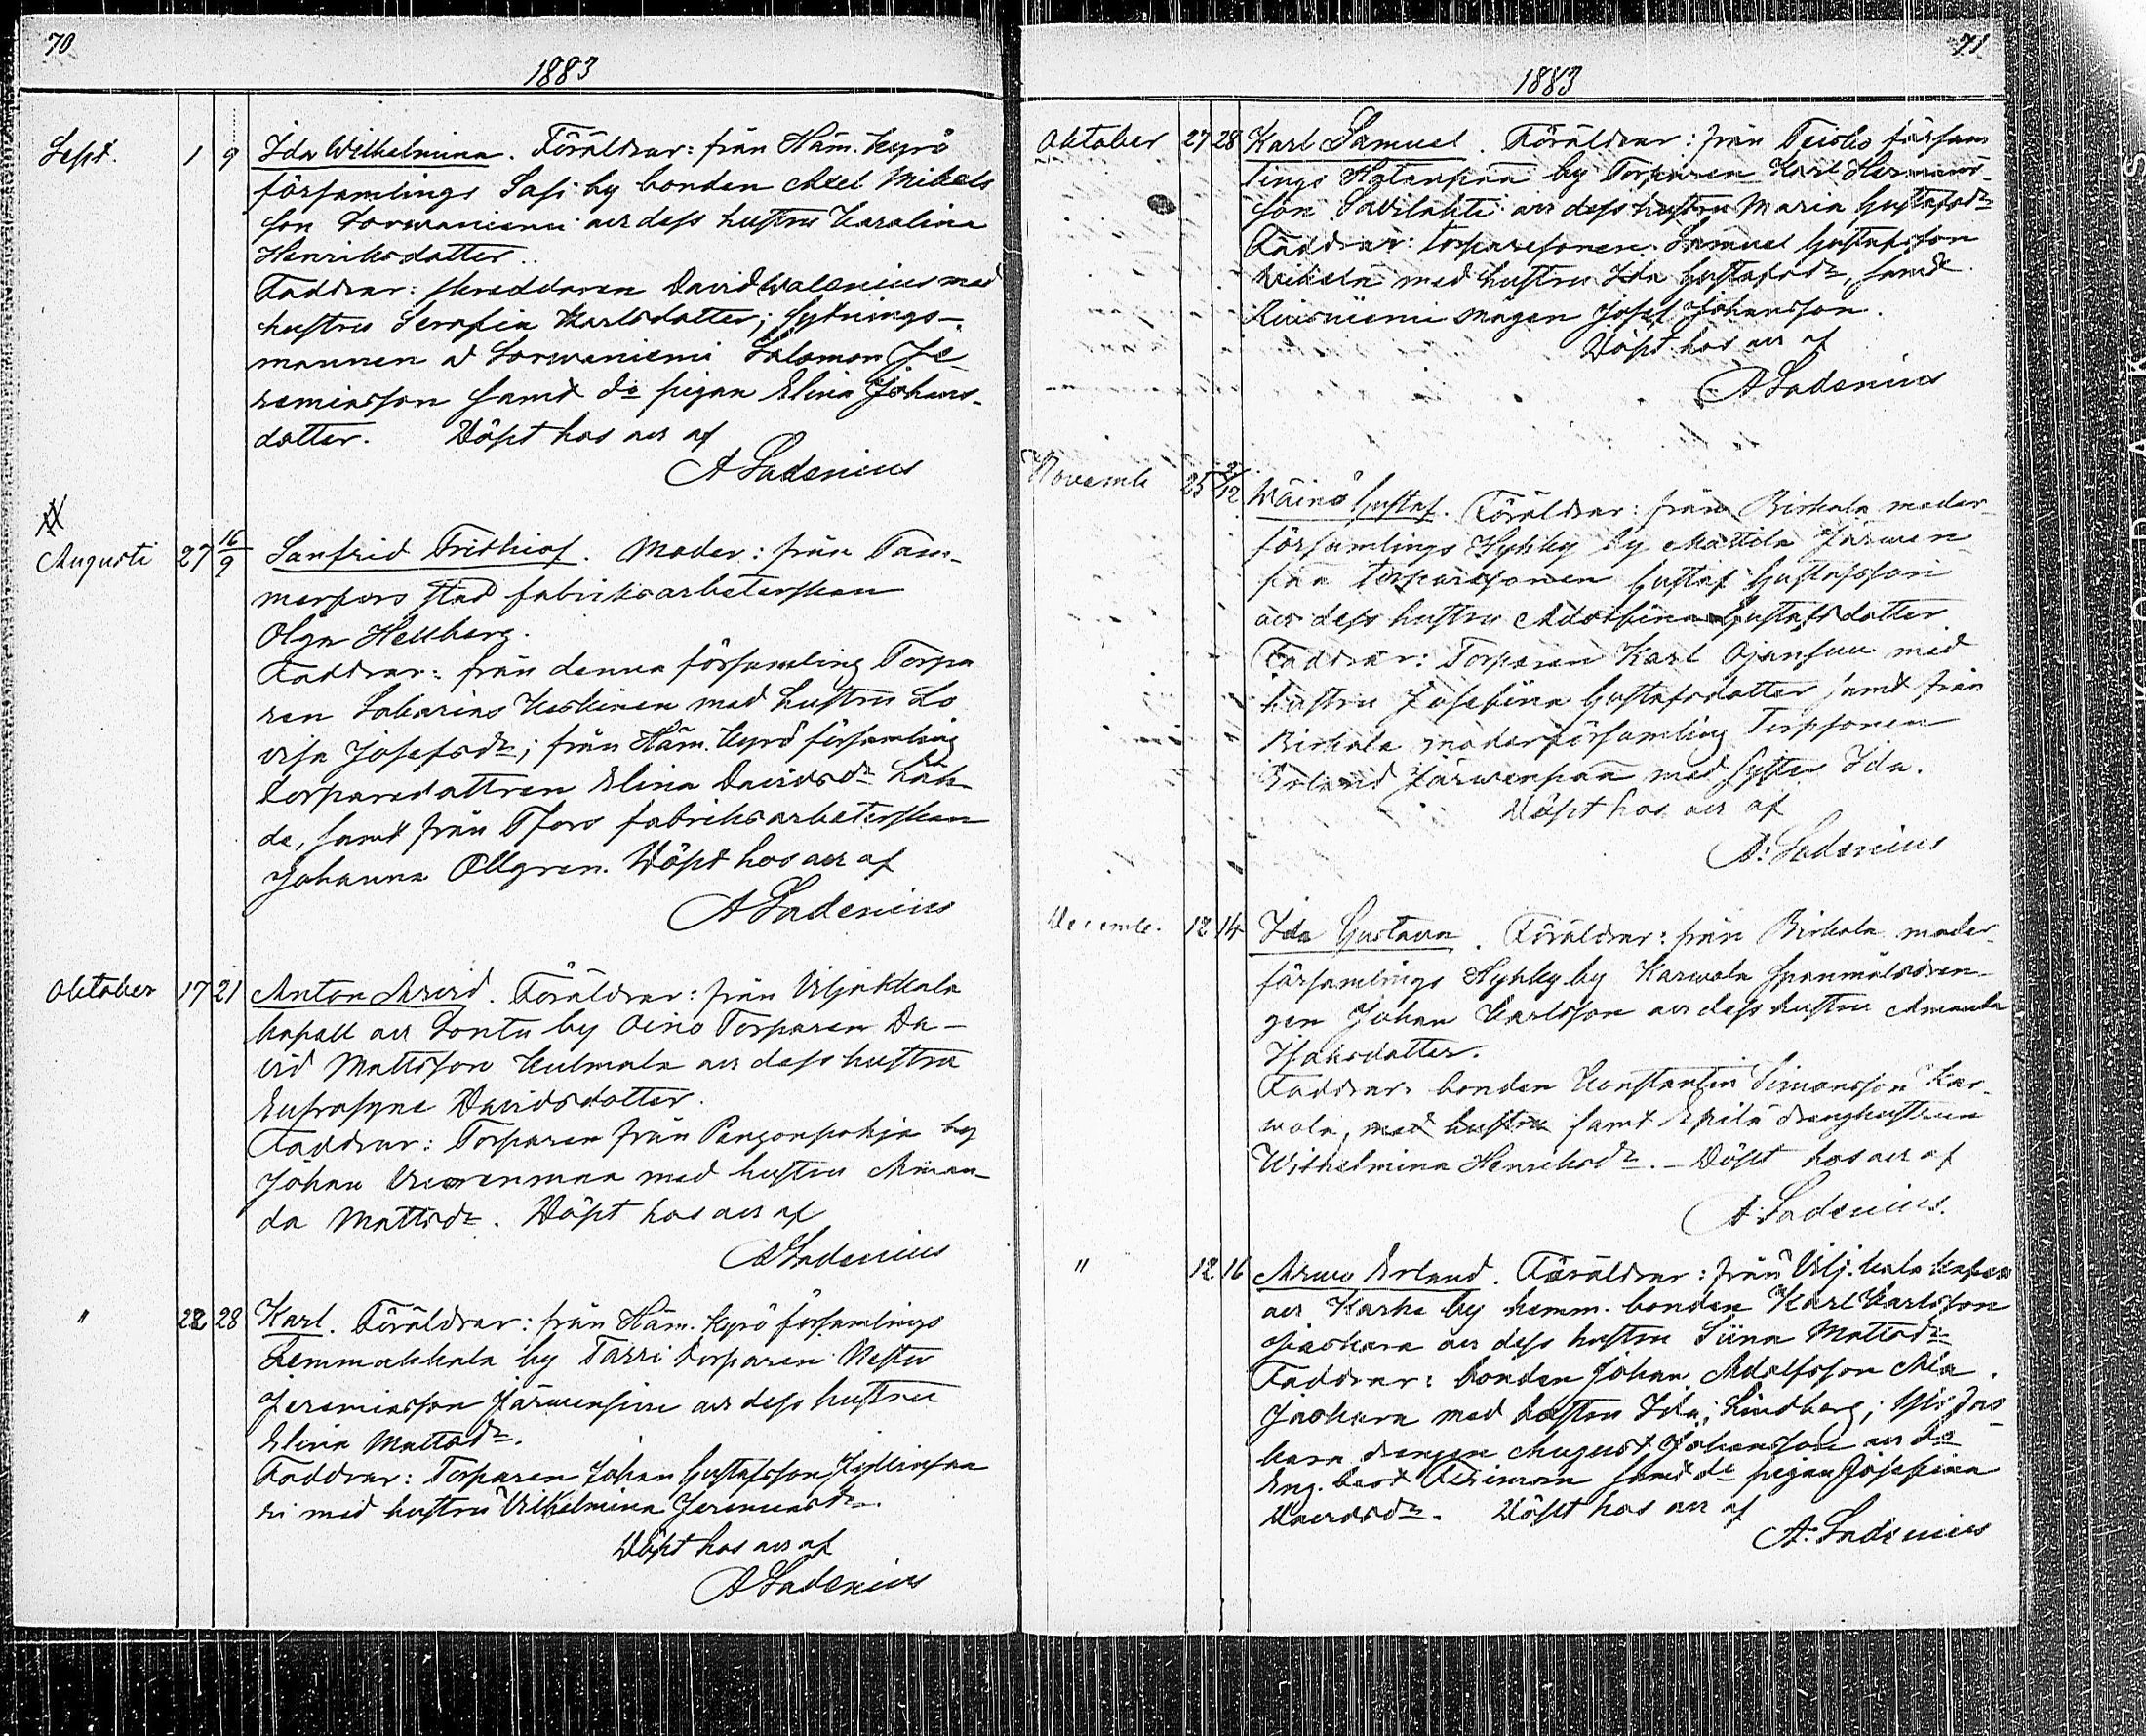 70
1883
Sept. 1 9 Ida Wilhelmina. Föräldrar: från Häm. Kyrö
församlings Sasi by bonden Axel Mikels
son Sorwaniemi och dess hustru Karolina
Henriksdotter.
Faddrar: skreddaren David Walenius med
hustru Serafia Karlsdotter; sytnings-
mannen a Sorwaniemi Salomon Je-
remiasson samt do pigan Elina Johans-
dotter. Döpt hos oss af
A Ladenius
Augusti 27 16/9 Sanfrid Fridhiof. Moder: från Tam-
merfors stad fabriksarbeterskan
Olga Hellberg.
Faddrar: från denna församling Torpa
ren Sakarias Keskinen med hustru Lo
visa Josefsdr; från Häm. Kyrö församling
torparedottren Elina Davidsdr Läh-
de, samt från Tfors fabriksarbeterskan
Johanna Öllgren. Döpt hos oss af
A Ladenius
Oktober 17 21 Anton Arvid. Föräldrar: från Viljakkala
kapell och Sontu by Oino Torparen Da-
vid Mattsson Kulmala och dess hustru
Eufrosyne Davidsdotter.
Faddrar: Torparen från Pengonpohja by
Johan Vuorenmaa med hustru Aman-
da Mattsdr. Döpt hos oss af
A Ladenius
" 22 28 Karl. Föräldrar: från Häm. Kyrö församlings
Lemmakkala by Tarri torparen Nestor
Jeremiasson Järwensivu och dess hustru
Elina Mattsdr.
Faddrar: Torparen Johan Gustafsson Hyllinsaa
ri med hustru Vilhelmina Jeremiasdr.
Döpt hos oss af
A Ladenius
71
1883
Oktober 27 28 Karl Samuel. Föräldrar: från Teisko försam
lings Hatanpää by Torparen Karl Hermans-
son Savilahti och dess hustru Maria Gustafsdr
Faddrar: torparesonen Samuel Gustafsson
med hustru Ida Gustafsdr, samt
Ruisniemi mågen Josef Johansson.
Döpt hos oss af
A Ladenius
Novemb. 25 2/12 Wäinö Gustaf. Föräldrar: från Birkala moder-
församlings Hyhky by Mattila Järwen-
pää torparesonen Gustaf Gustafsson
och dess hustru Adolfina Gustafsdotter
Faddrar: Torparen Karl Ojansuu med
hustru Josefina Gustafsdotter samt från
Birkala moderförsamling Torpsonen
Erland Järwenpää med syster Ida.
Döpt hos oss af
A. Ladenius
Decemb. 12 14 Ida Gustava. Föräldrar: från Birkala moder-
församlings Hyhky by Karwola spanmålsdren-
gen Johan Karlsson och dess hustru Amanda
Isaksdotter.
Faddrar: bonden Konstantin Simonsson Kar-
wola, med hustru samt Epilä drenghustrun
Wilhelmina Henriksdr. – Döpt hos oss af
A. Ladenius.
" 12 16 Arwo Erland. Föräldrar: från Vilj.kala kapell
och Karhe by hemm. bonden Karl Karlsson
Jaskara och dess hustru Siina Mattsdr
Faddrar: bonden Johan Adolfsson Ala
Jaskara med hustru Ida; Lindberg; Yli Jas-
kara drengen August Johansson och do
samt do pigan Josefina
Davidsdr. Döpt hos oss af
A. Ladenius